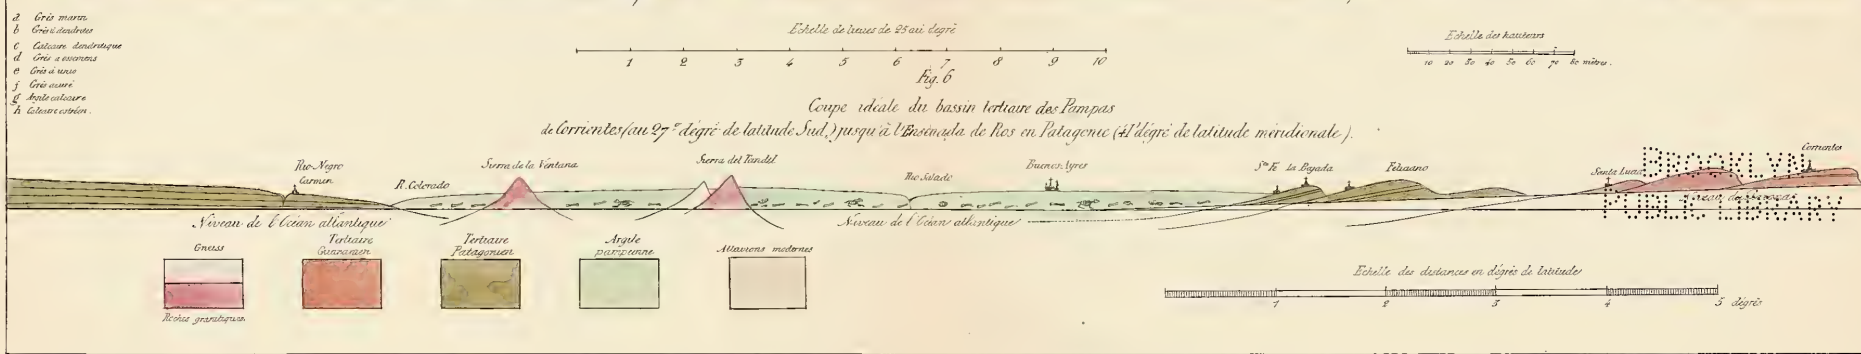 a Grès marin
b Grès à dendrites
c Calcaire dendritique
d Grès à ossemens
e Grès à unio
f Grès azuré
g Argile calcaire
h Calcaire ostréen.
Echelle de lieues de 25 au dégré
1 2 3 4 5 6 7 8 9 10
Echelle des hauteurs
10 20 30 40 50 60 70 80 mètres.
Fig. 6
Coupe idéale du bassin tertiaire des Pampas
de Corrientes (au 27.e dégré de latitude Sud,) jusqu'à l'Ensenada de Ros en Patagonie (41e dégré de latitude méridionale).
Rio-Negro
Carmen
R. Colorado
Sierra de la Ventana
Sierra del Tandil
Rio Salado
Buenos Ayres
Sta Fé La Bajada
Feliciano
Santa Lucia
Corrientes
BROOKLYN
PUBLIC LIBRARY
Niveau de l'Océan atlantique
Niveau de l'Océan atlantique
Gneiss
Roches granitiques.
Tertiaire
Guaranien
Tertiaire
Patagonien
Argile
pampeenne
Alluvions modernes
Echelle des distances en dégrés de latitudes
1 2 3 4 5 dégrés